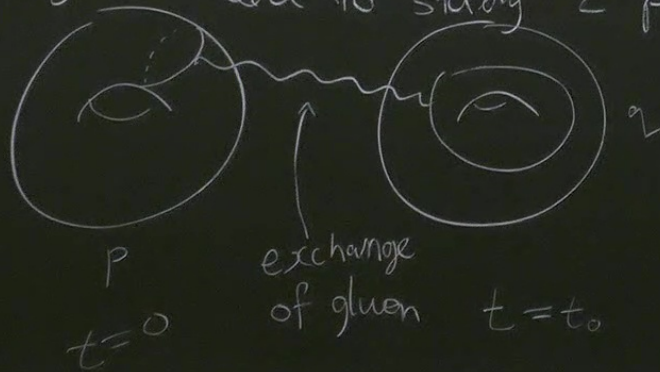 to study 2
P
exchange
of gluon
t = 0
t = t₀